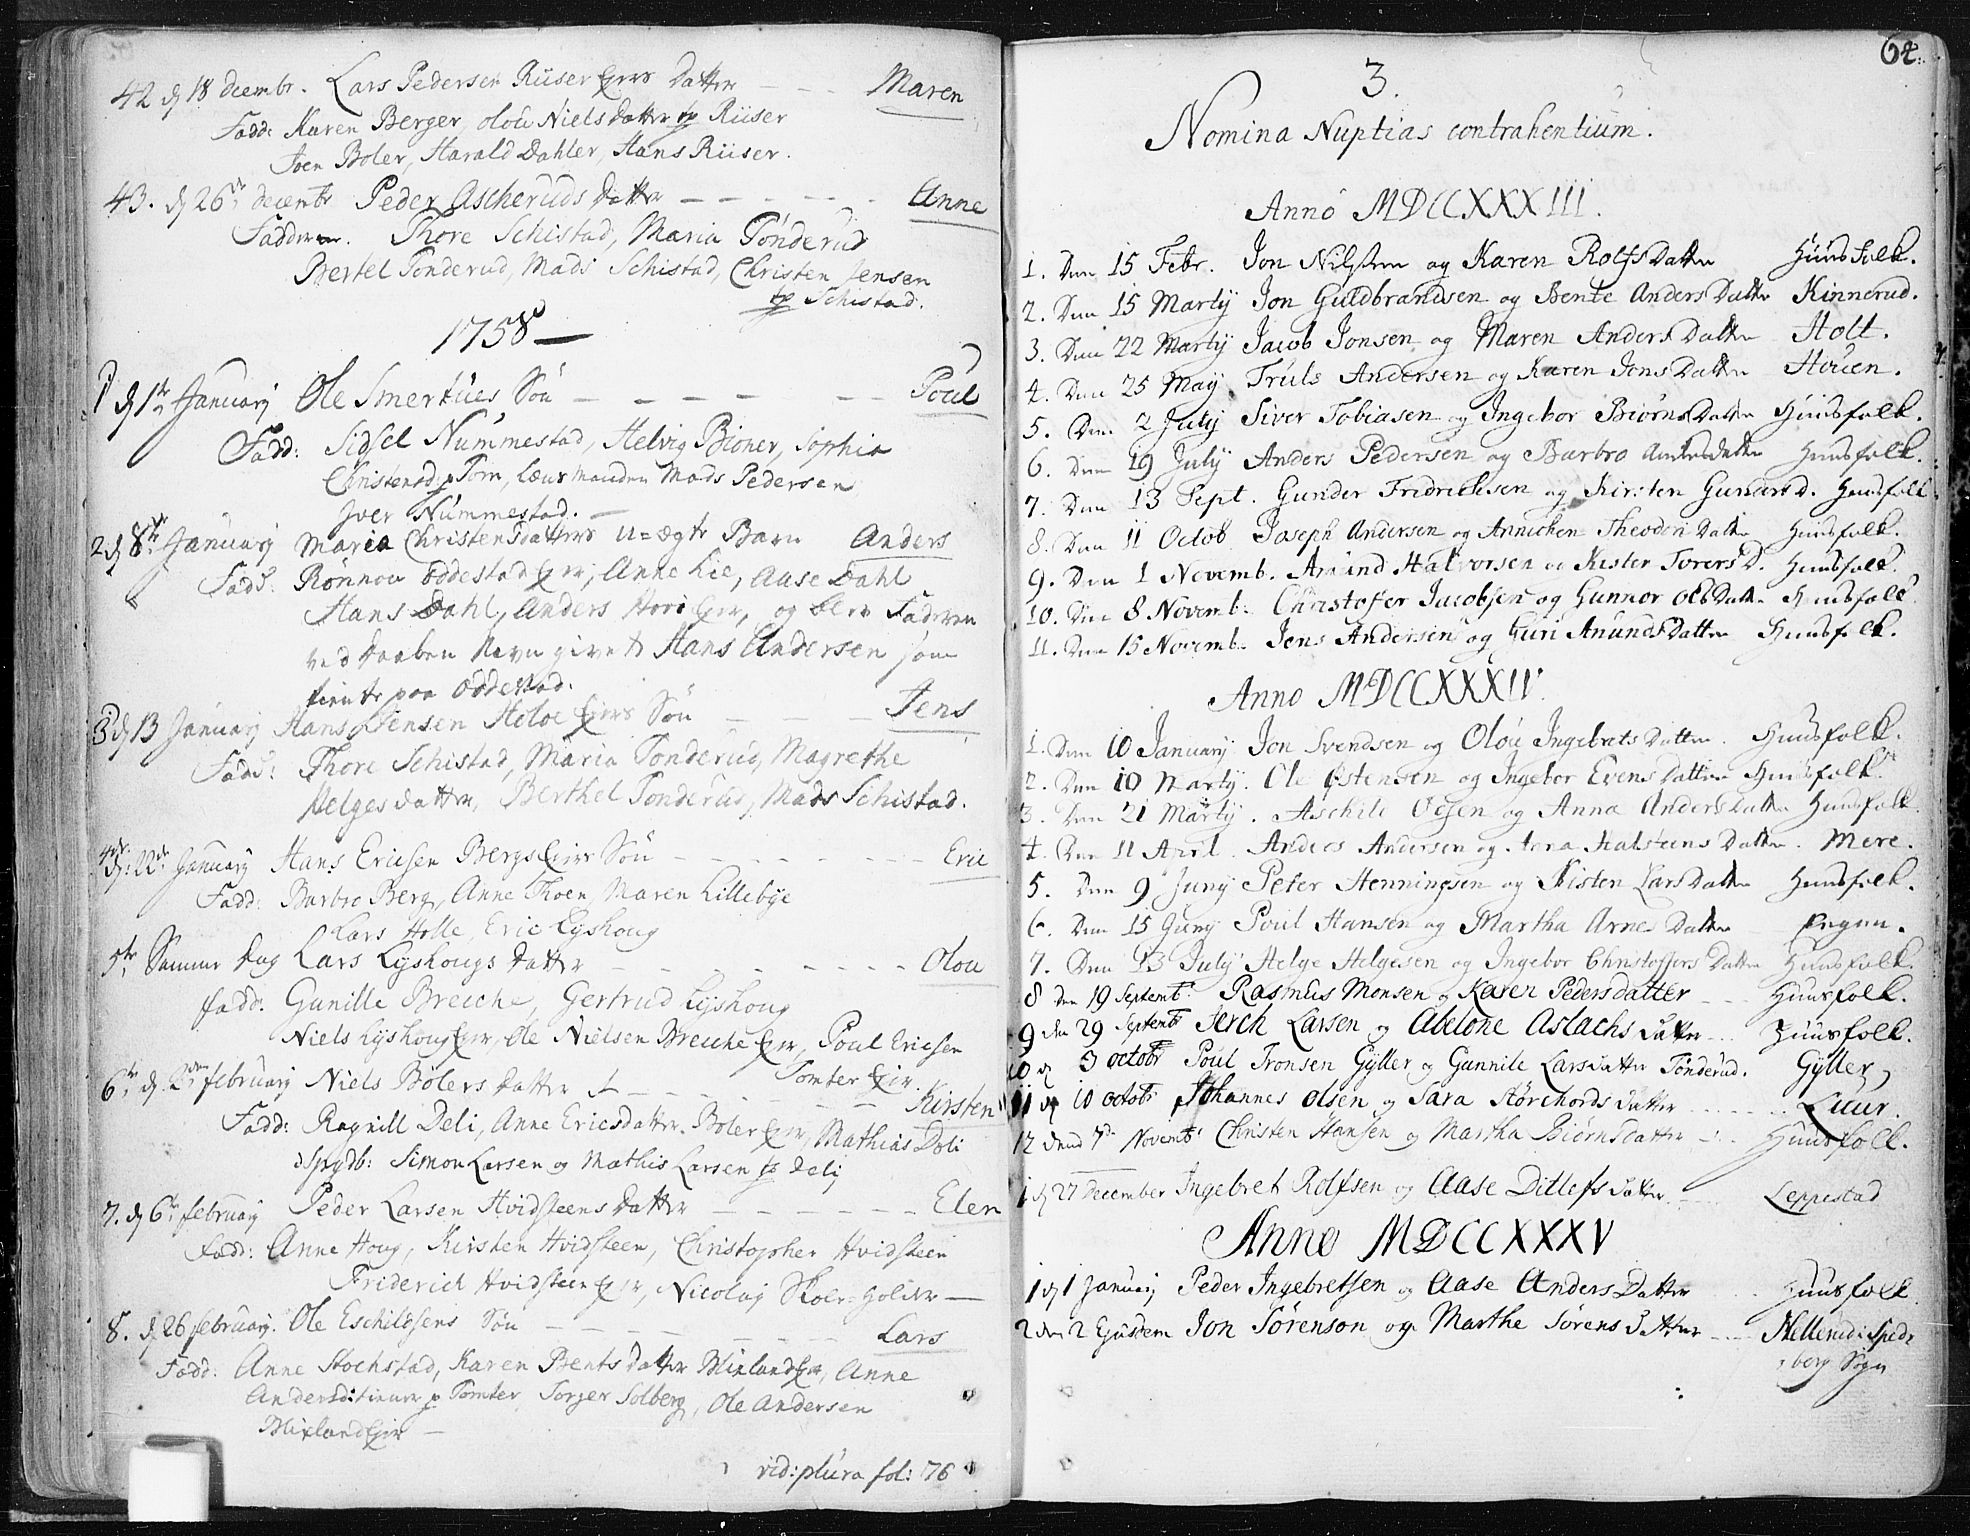 42 d 18 decembr. Lars Pedersen Riiser Eiers Datter - - - Maren
Fadd: Karen Berger, Olou Niels Datter Riiser
Iven Boler, Harald Dahler, Hans Riiser.
43. d 26 decembr Peder Ascheruds Datter - - - - - - Anne
Fadderne. Thore Schistad, Maria Tonderud
Bertel Tonderud, Mads Schistad, Christen Jensen
Schistad.
1758
1 d 1te January Ole Smertües Søn - - - - - Poul
Fadd: Sidsel Nummestad, Helvig Bioner, Sophia
Christensd Tom, Lensmanden Mads Pedersen
Iver Nummestad.
2 d 8te January Maria Christensdatters U=ægte Barn Anders
Fadd: Rønnou Oddestad Eier, Anne Lie, Aase Dahl
Hans Dahl, Anders Eier, og blev Faderen
ved Daaben Navn givet Hans Andersen som
tiente paa Oddestad.
3 d 13 January Hans Jensen Eiers Søn - - - Jens
Fadd: Thore Schistad, Maria Tonderud, Magrethe
Helgesdatter, Berthel Tonderud, Mads Schistad.
4 d: 22de January Hans Ericsen Bergs Eier Søn - - - - - - - - Eric
Fadd: Barbro Berg, Anne Thoen, Maren Lillebye
Lars Holle, Eric Lyshoug
5te Samme Dag Lars Lyshougs Datter - - - - - - - - Olou
fadd: Gunille Breiche, Gertrud Lyshoug
Niels Lyshoug Eier, Ole Nielsen Breiche Eier, Poul Ericsen
Tomter Eier.
6te d. 2den february Niels Bølers Datter - - - - - - - Kirsten
Fadd: Ragnill Deli, Anne Ericsdatter Boler Eier, Mathias Deli
Simon Larsen og Mathis Larsen Deli
7. d 6te february Peder Larsen Hvidsteens Datter - - - - - - Elen
fadd: Anne Houg, Kirsten Hvidsteen, Christopher Hvidsteen
Friderich Hvidsteen Eier, Nicolay Skoleholder -
8. d 26 february. Ole Eschildsens Søn - - - - - - Lars
Fadd: Anne Stochstad, Karen Bentsdatter Mixland Eier, Anne
Andersd: Tomter, Torger Solberg, Ole Andersen
Mixland Eier -
vid: plura fol: 76
64.
3.
Nomina Nuptias contrahentium.
Anno MDCCXXXIII.
1. Den 15 Febr. Jon Nilsen og Karen Rolfs Datter Huusfolk.
2. Den 15 Martij Jon Guldbrandsen og Bente Anders Datter Kinnerud.
3. Den 22 Martij Jacob Jonsen og Maren Anders Datter Holt.
4. Den 25 Maij Truls Andersen og Karen Jons Datter Houen.
5. Den 2 July Siver Tobiasen og Ingebor Biørns Datter Huusfolk.
6. Den 19 July Anders Pedersen og Barbro Andersdatter Huusfolk.
7. Den 13 Sept. Gunder Fridricksen og Kirsten Gunders D. Huusfolk
8. Den 11 Octob Joseph Andersen og Annichen Theodori Datter Huusfolk.
9. Den 1 Novemb. Amund Halvorsen og Kister Torers D. Huusfolk.
10. Den 8 Novemb. Christofer Jacobsen og Gunnor Ols Datter Huusfolk
11. Den 15 Novemb. Jens Andersen og Guri Anunds Datter Huusfolk.
Anno MDCCXXXIV.
1. Den 10 January Jon Svendsen og Olou Ingebrets Datter. Huusfolk.
2. Den 10 Martij. Ole Østensen og Ingebor Evens Datter Huusfolk
3. Den 21 Martij. Aschild Olsen og Anna Anders Datter Huusfolk
4. Den 11 April. Anders Andersen og Halsteens Datter. Mere.
5. Den 9 Juny Peter Henningsen og Kisten Lars Datter Huusfolk.
6. Den 15 Juny Poul Hansen og Martha Arnes Datter Engen.
7. Den 13 July Helge Helgesen og Ingebor Christoffers Datter Huusfolk.
8 den 19 Septemb: Rasmus Monsen og Karen Pedersdatter - - Huusfolk.
9 den 29 Septemb Jerck Larsen og Abelone Aslachs Datter - - - Huusfolk.
10 d 3 octobr Poul Tronsen Gyller og Gunnile Larsdatter Tonderud. Gyller
11 d 10 octobr Johannes Olsen og Sara Størchords Datter - - - - - Luur.
12 dend 7de Novembr Christen Hansen og Martha Biørnsdatter - - Huusfolk.
1 d 27 December Ingebret Rolfsen og Aase Ditlefs Datter - - - Leppestad
Anno MDCCXXXV
1 d 1 January Peder Ingebretsen og Aase Anders Datter - - Huusfolk
2 den 2 Ejusdem Jon Sørenson og Marthe Sørens Datter - - - Hellerud i Sped=
berg Sogn